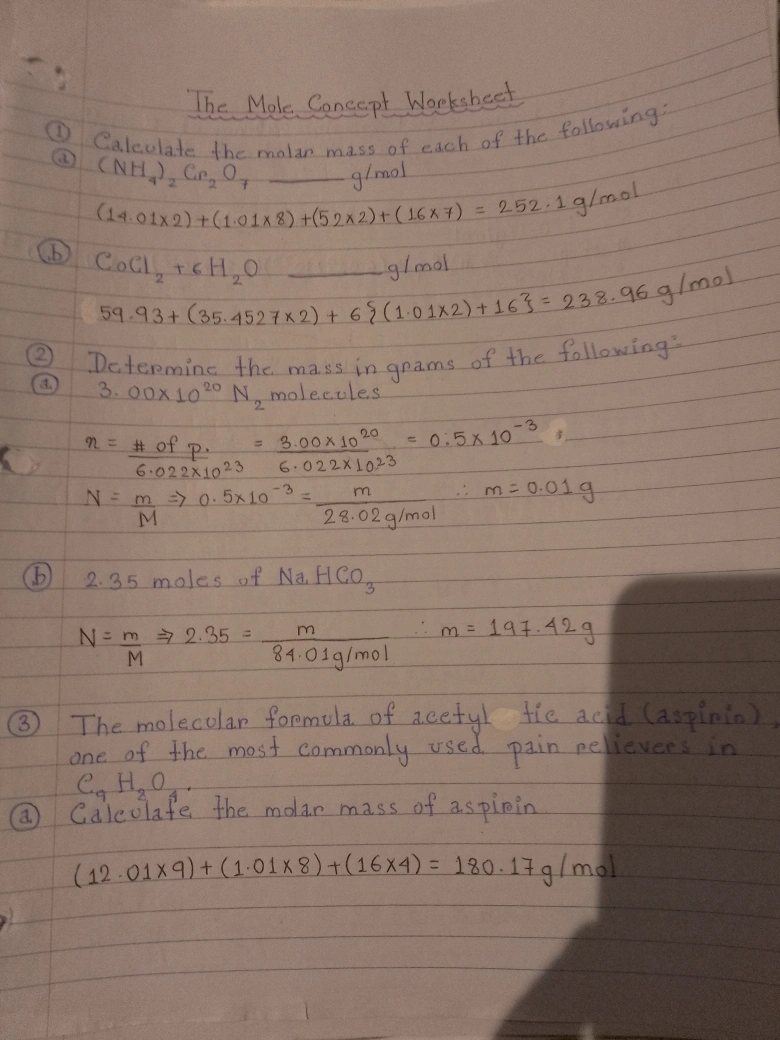 The Mole Concept Worksheet
① Calculate the molar mass of each of the following:
ⓐ (NH₄)₂ Cr₂O₇ ______ g/mol
(14.01×2)+(1.01×8)+(52×2)+(16×7) = 252.1 g/mol
ⓑ CoCl₂ + 6H₂O ______ g/mol
59.93+(35.4527×2)+ 6{(1.01×2)+16} = 238.96 g/mol
② Determine the mass in grams of the following:
ⓐ 3.00×10²⁰ N₂ molecules
n = # of p. / 6.022×10²³ = 3.00×10²⁰ / 6.022×10²³ = 0.5×10⁻³
N = m/M ⇒ 0.5×10⁻³ = m / 28.02 g/mol ∴ m = 0.01 g
ⓑ 2.35 moles of NaHCO₃
N = m/M ⇒ 2.35 = m / 84.01g/mol ∴ m = 197.42 g
③ The molecular formula of acetyl tic acid (aspirin),
one of the most commonly used pain relievers in
C₉H₈O₄.
ⓐ Calculate the molar mass of aspirin
(12.01×9)+(1.01×8)+(16×4) = 180.17g/mol